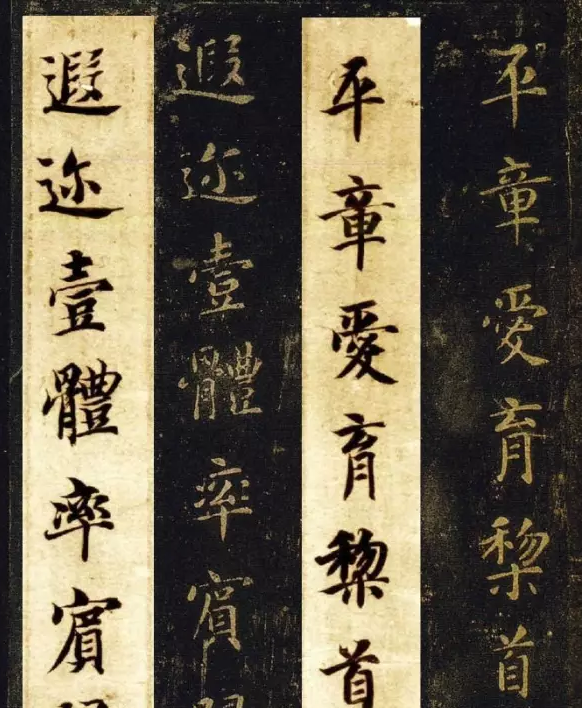 平章愛育黎首
平章愛育黎首
遐迩壹體率賓
遐迩壹體率賓